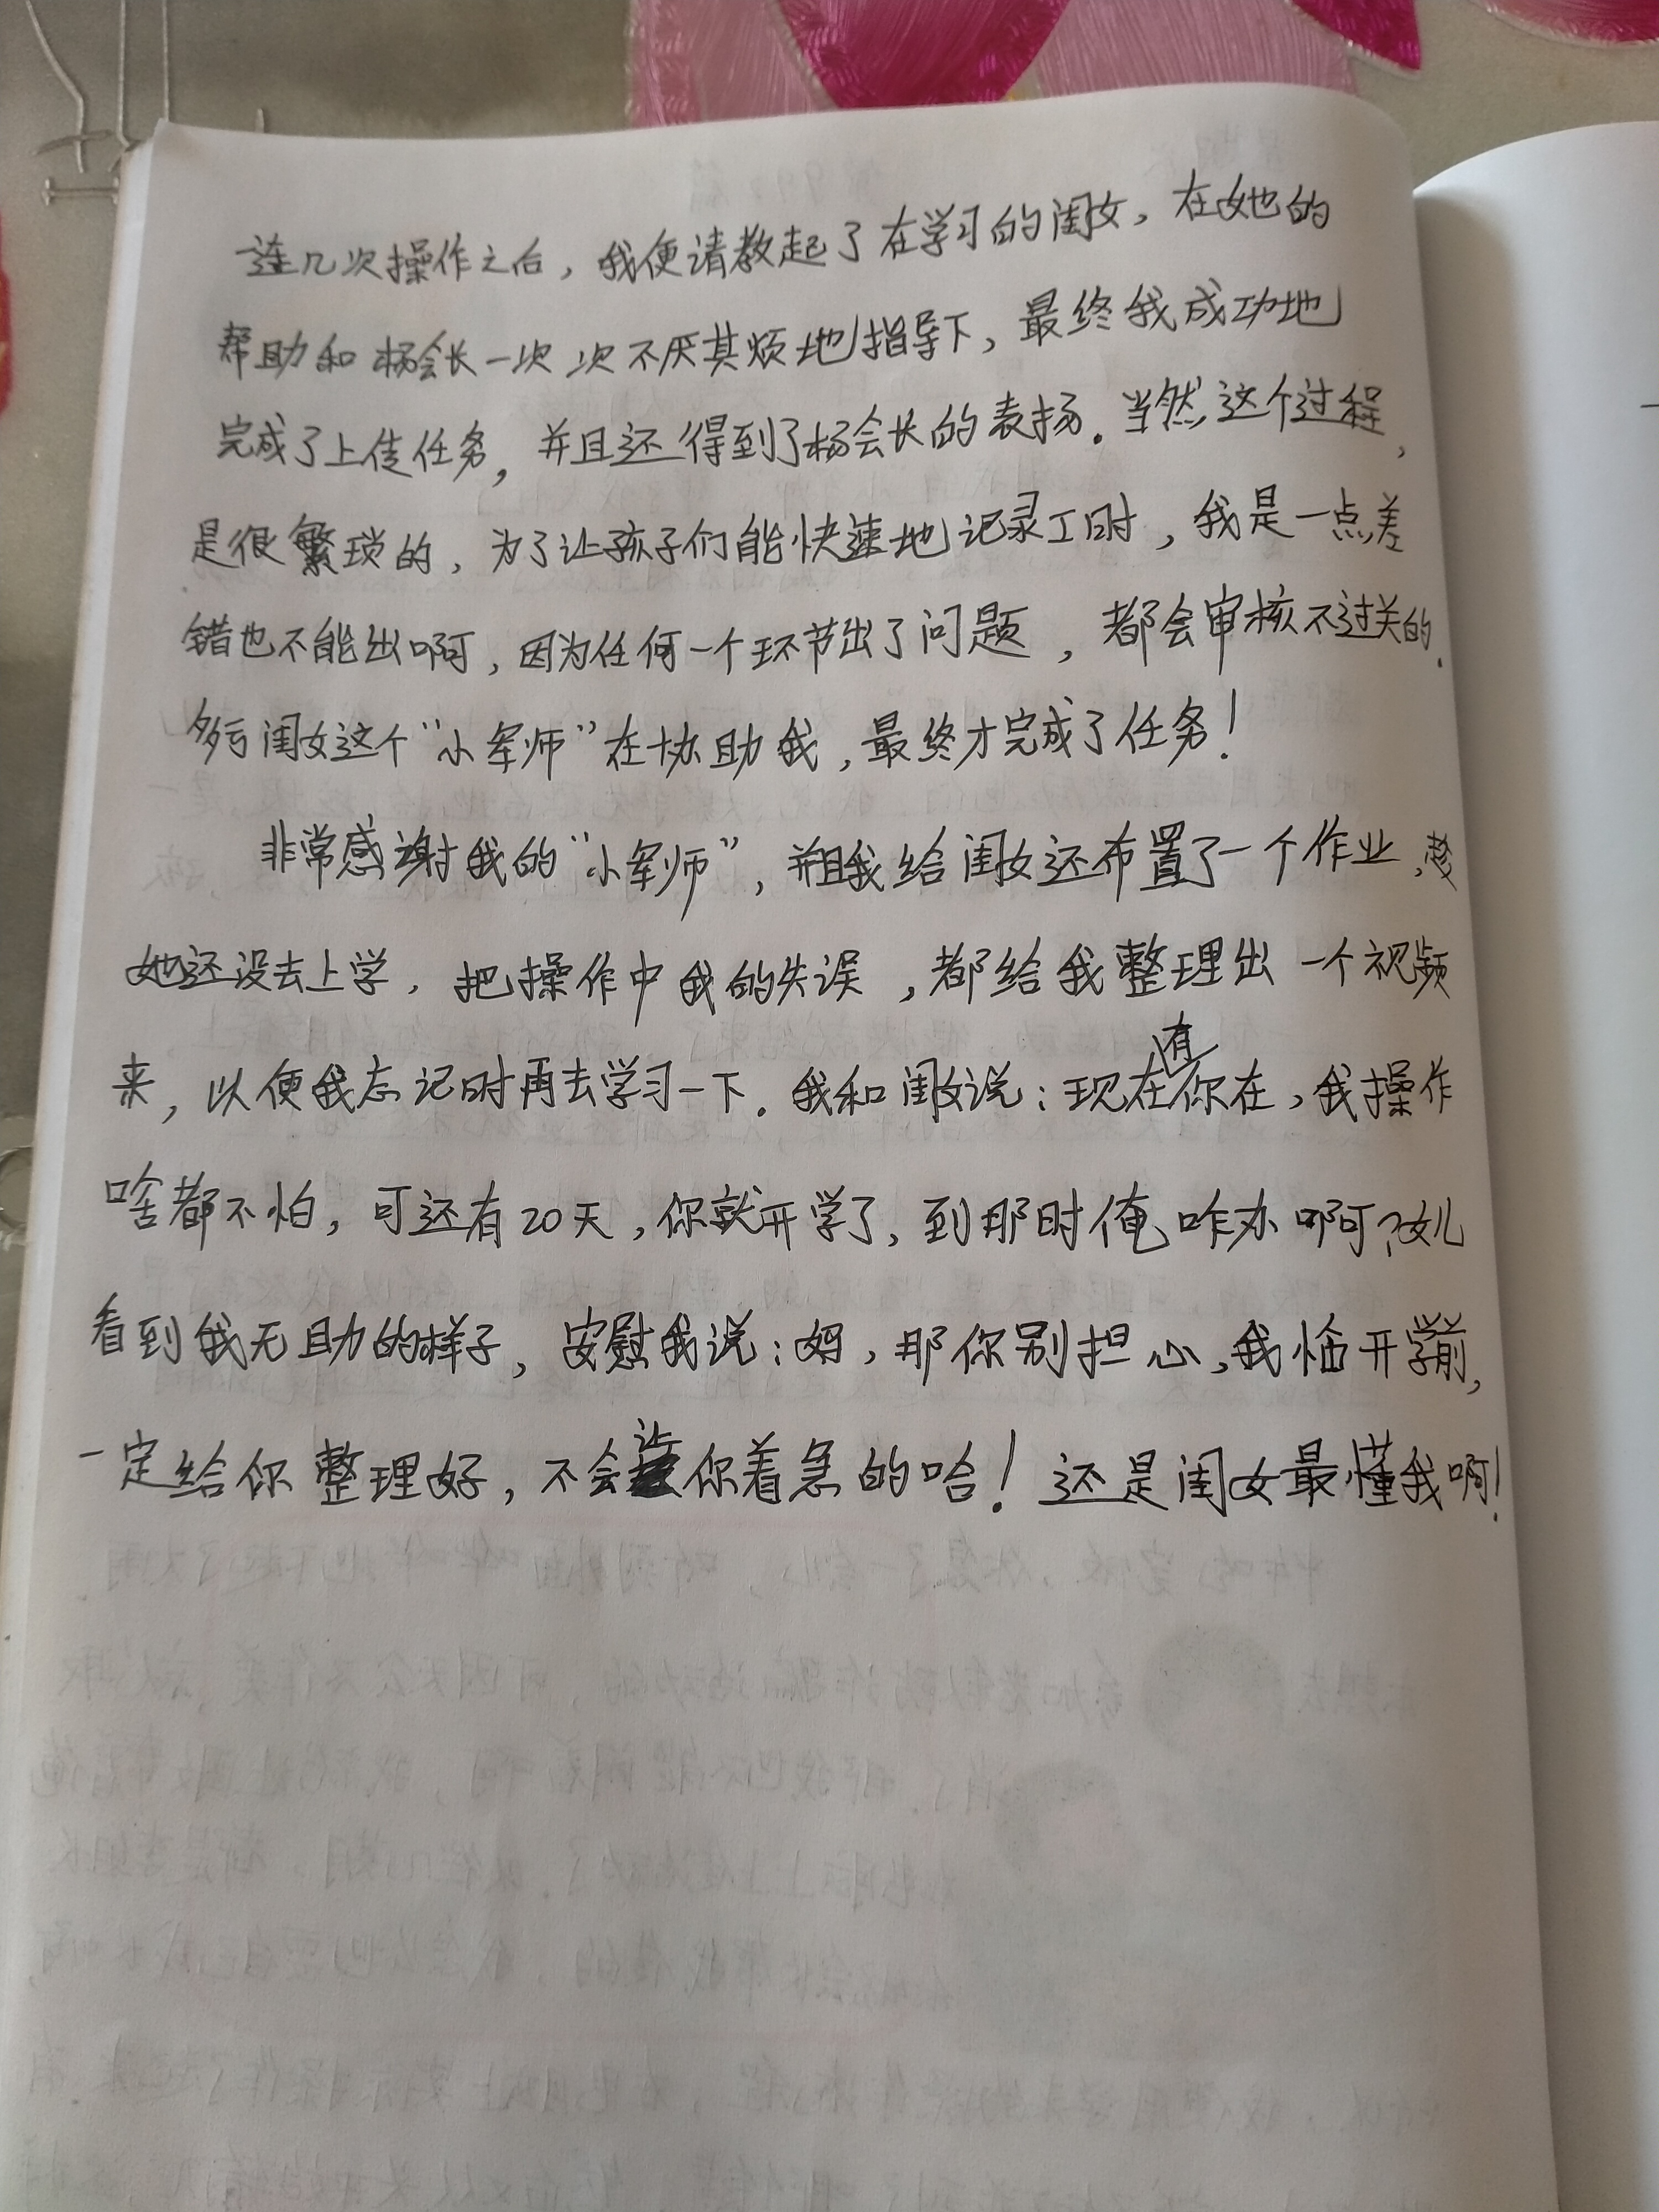 连几次操作之后，我便请教起了在学习的闺女，在她的
帮助和杨会长一次次不厌其烦地指导下，最终我成功地
完成了上传任务，并且还得到了杨会长的表扬。当然，这个过程，
是很繁琐的，为了让孩子们能快速地记录工时，我是一点差
错也不能出啊，因为任何一个环节出了问题，都会审核不过关的．
多亏闺女这个“小军师”在协助我，最终才完成了任务！
非常感谢我的“小军师”，并且我给闺女还布置了一个作业，趁
她还没去上学，把操作中我的失误，都给我整理出一个视频
来，以便我忘记时再去学习一下．我和闺女说：现在有你在，我操作
啥都不怕，可还有20天，你就开学了，到那时俺咋办啊？女儿
看到我无助的样子，安慰我说：妈，那你别担心，我临开学前，
一定给你整理好，不会让你着急的哈！还是闺女最懂我啊！